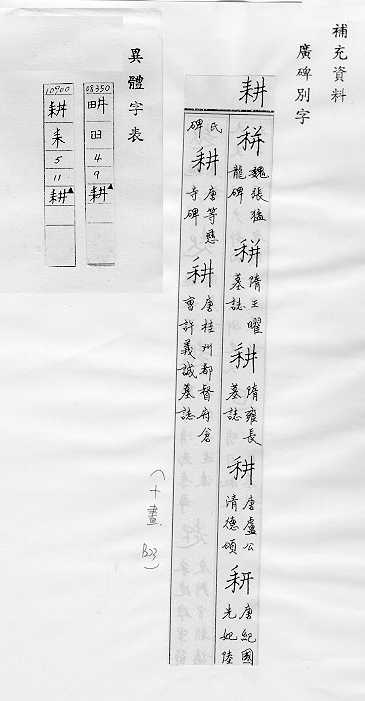 補充資料
廣碑別字
耕
魏張猛
龍碑
隋王曜
墓誌
耕
隋雍長
墓誌
耕
唐盧公
清德頌
唐紀國
先妃陸
氏
碑
耕
唐等慈
寺碑
唐桂州都督府倉
曹許義誠墓誌
(十畫 B23)
異體字表
08350
畊
田
4
9
耕▲
10900
耕
耒
5
11
耕▲